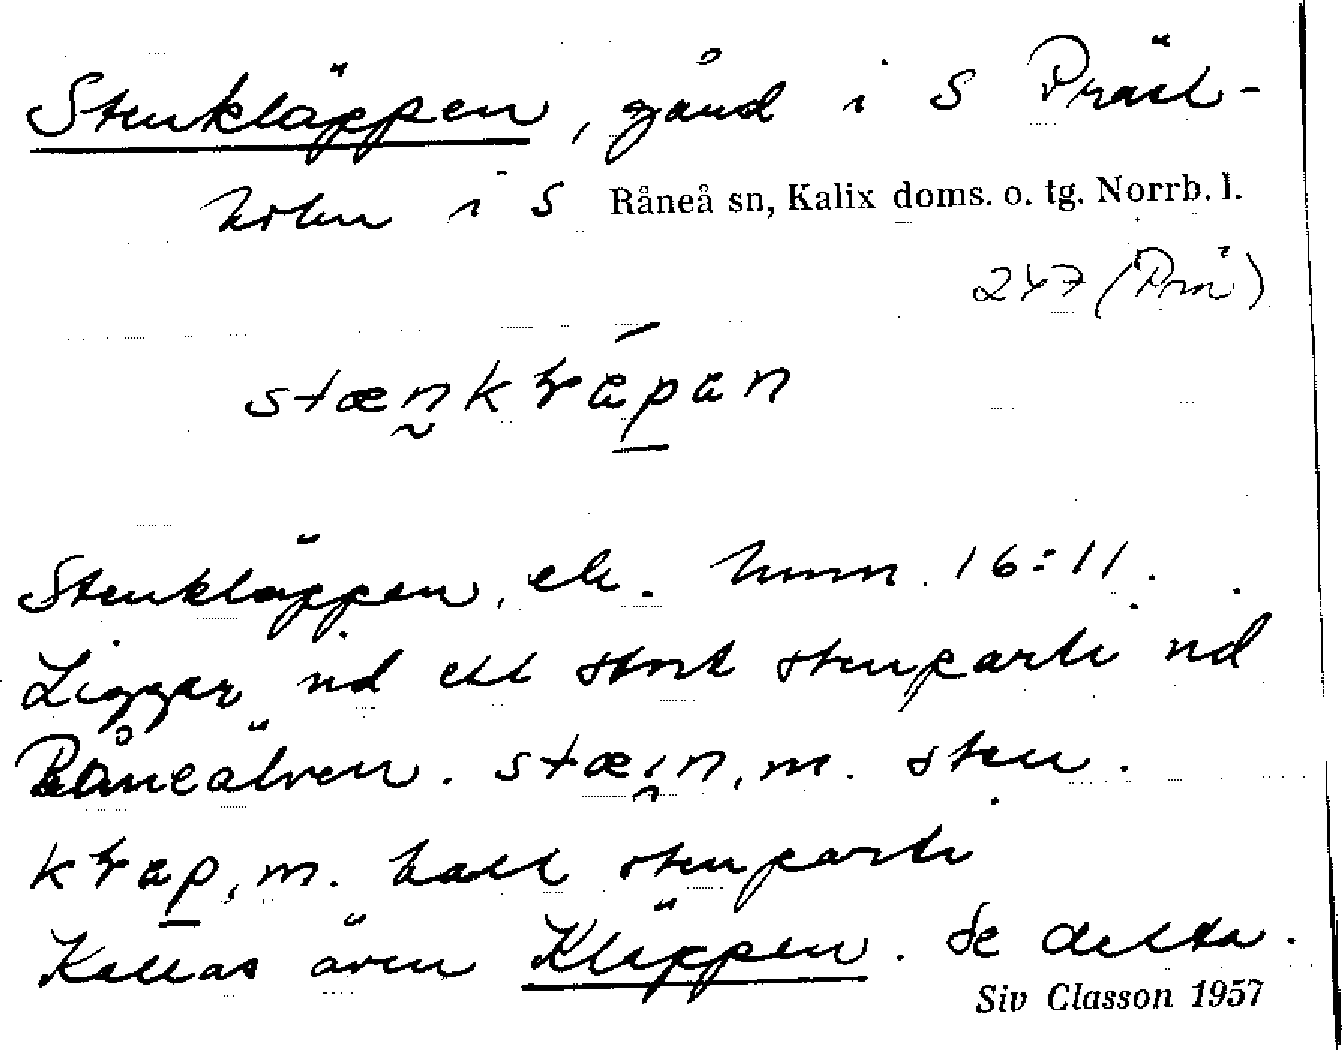 Stenkläppen, gård i S Präst-
holm i S Råneå sn, Kalix doms. o. tg. Norrb. l.
247 (Prm)
Stenkläppen, ek. hmn. 16:11.
Ligger vid ett stort stenparti vid
Råneälven. stæi̯n, m. sten.
m. hall stenparti
Kallas även Kläppen. Se detta.
Siv Classon 1957